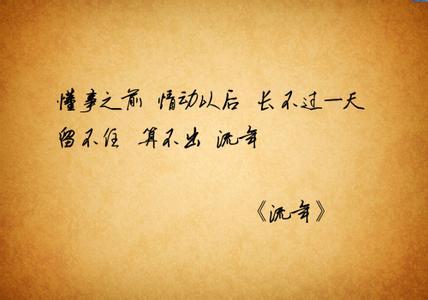 懂事之前 情动以后 长不过一天
留不住 算不出 流年
《流年》